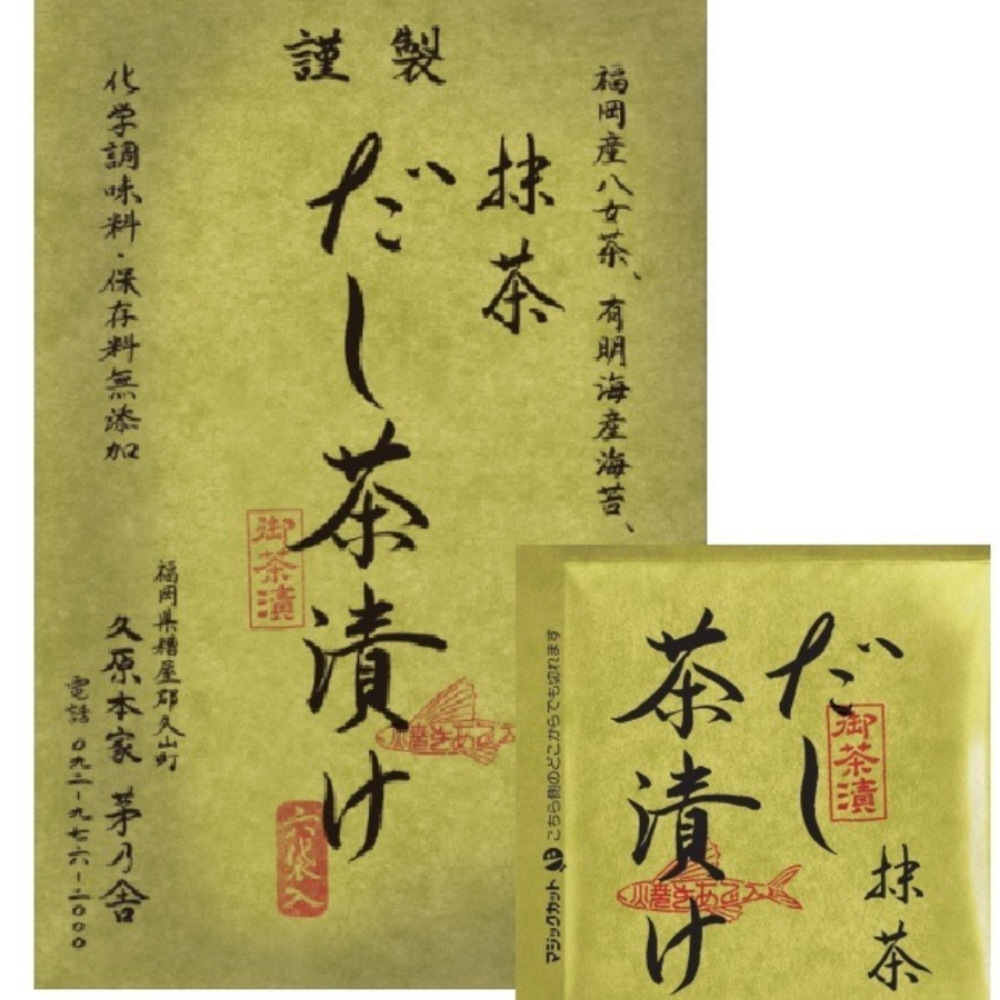 謹製
福岡産八女茶、有明海産海苔、
抹茶
だし茶漬け
御茶漬
焼きあご入
六袋入
化学調味料・保存料無添加
福岡県糟屋郡久山町
久原本家 茅乃舎
電話 〇九二-九七六-二〇〇〇
だし
茶漬け
抹茶
御茶漬
焼きあご入
マジックカット こちら側のどこからでも切れます